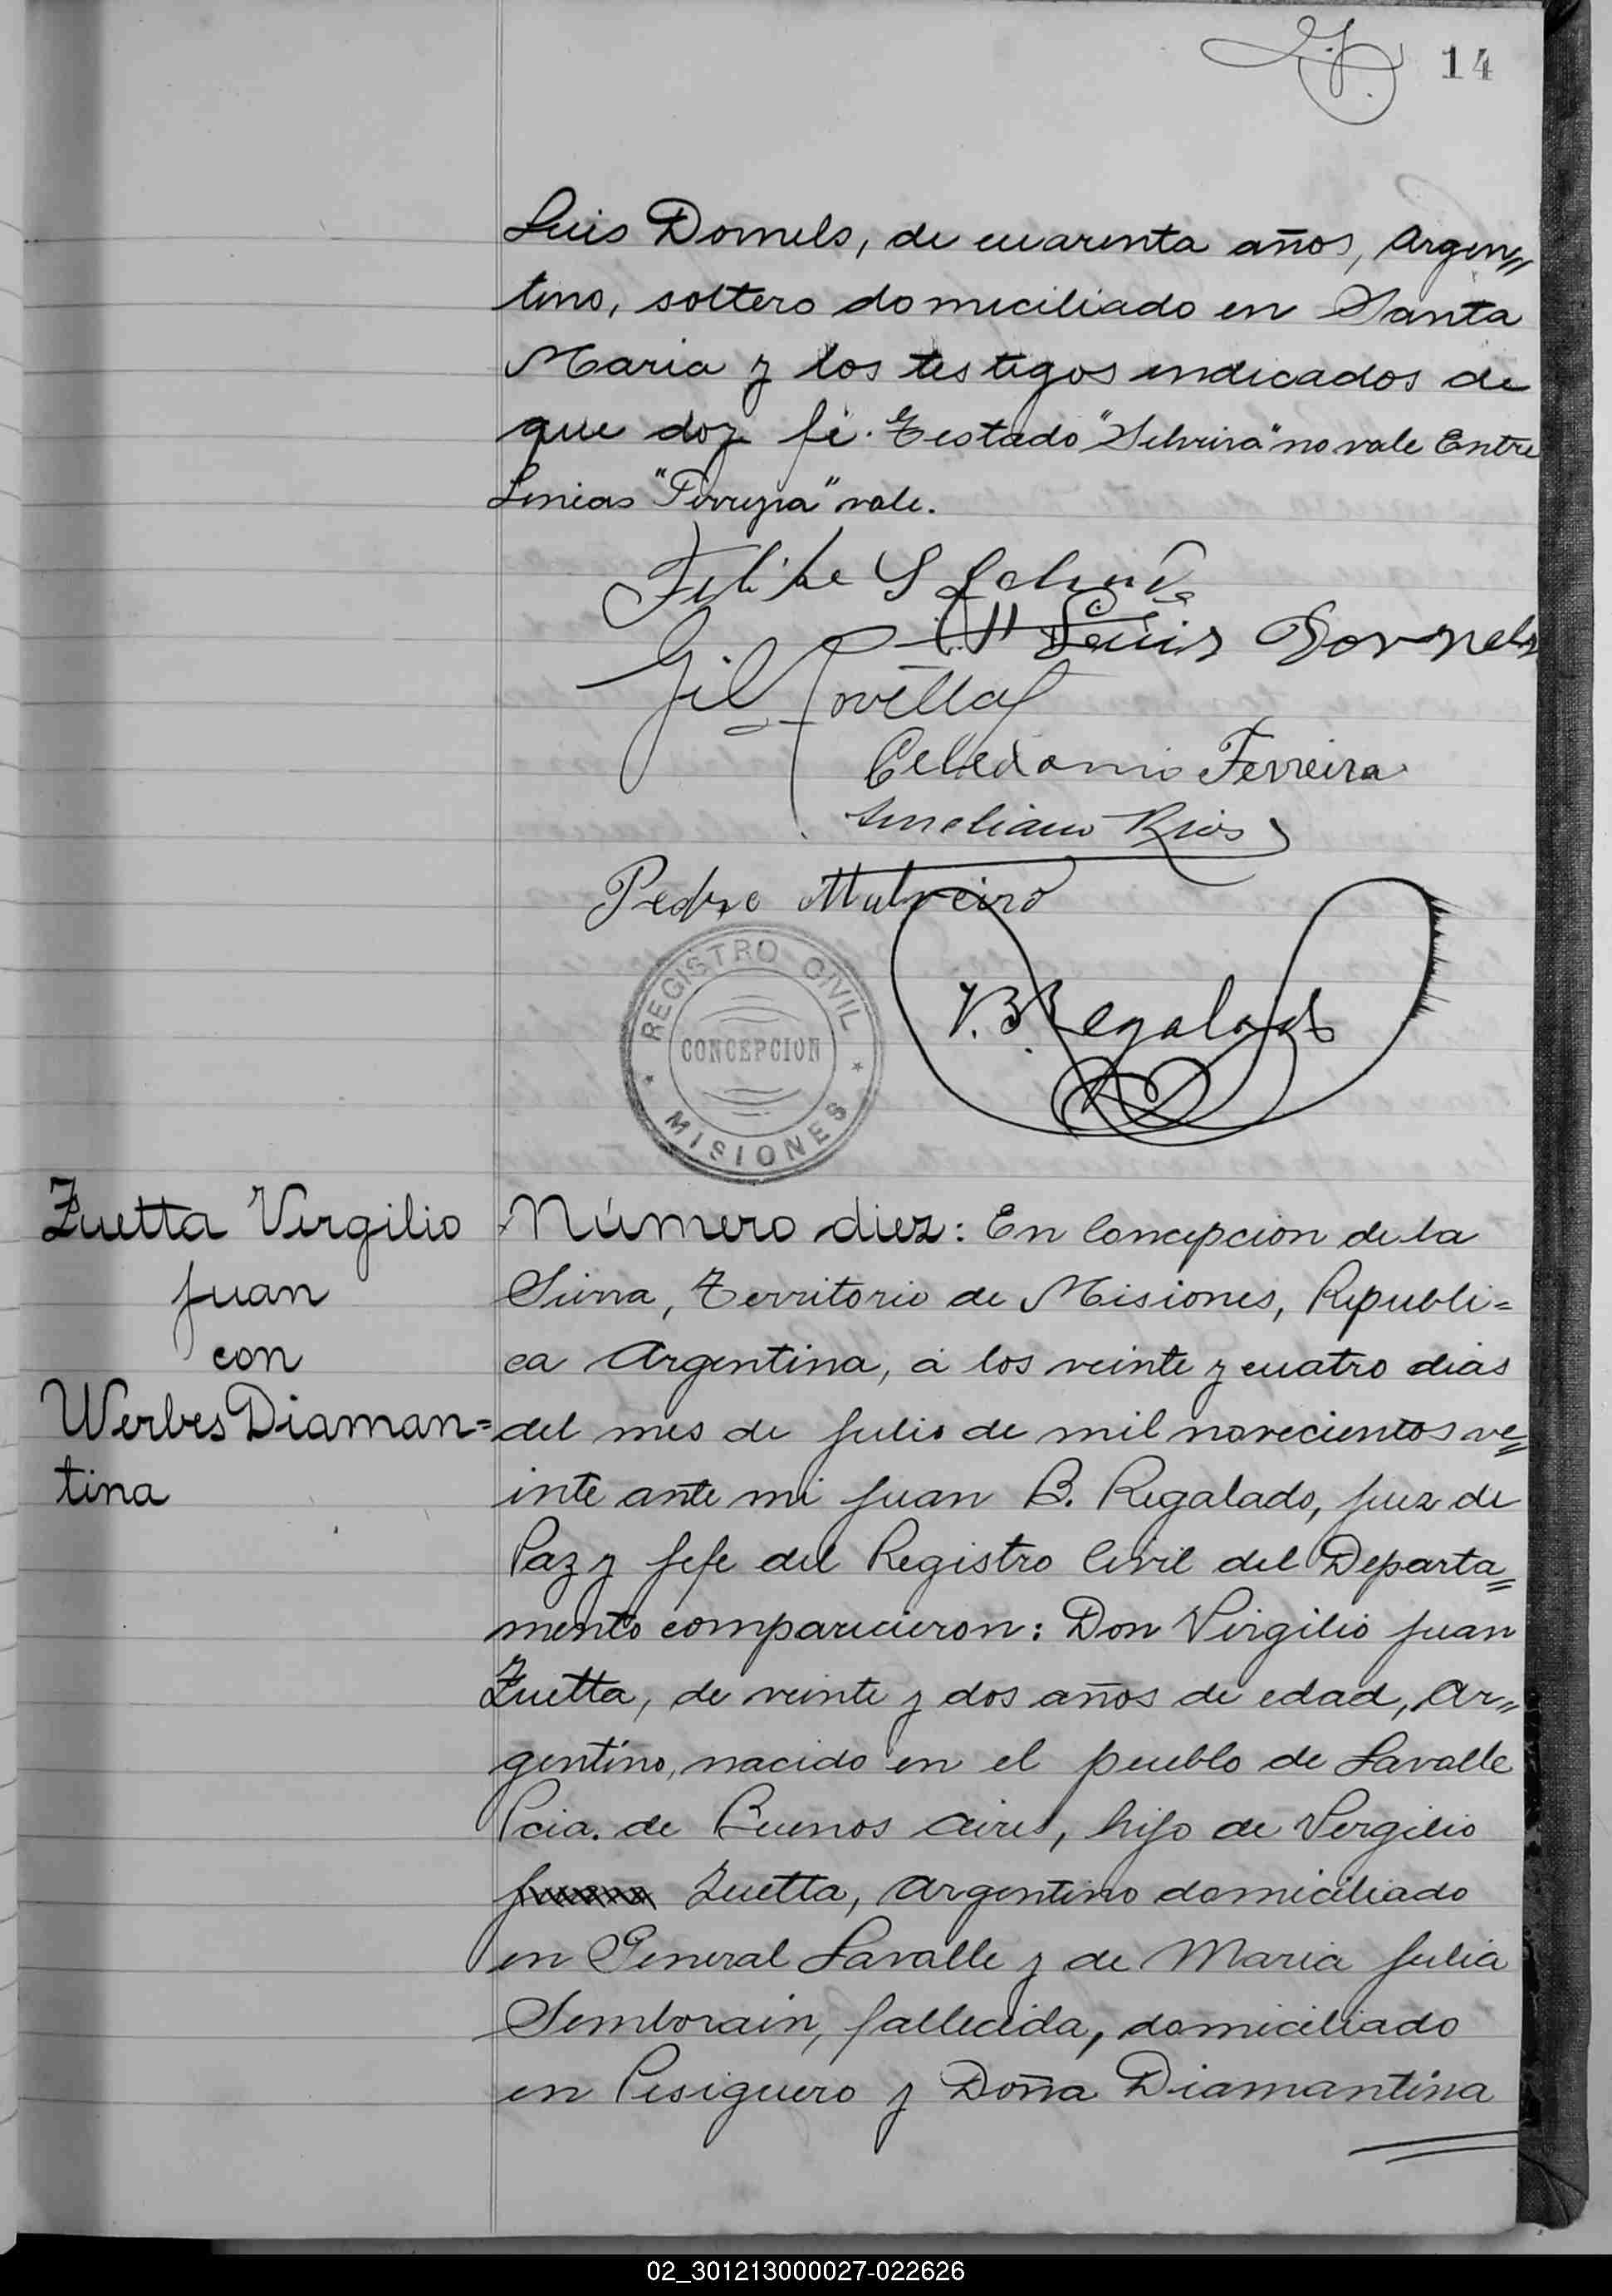 14
Luis Dornels, de cuarenta años, Argen=
tino, soltero domiciliado en Santa
Maria y los testigos indicados de
que doy fé. Testado "Silveira" no vale Entre
Linias "Ferreyra" vale.
Luis Dornels
Gil Novella
Celedonio Ferreira
Rios
Pedro
REGISTRO CIVIL
CONCEPCION
MISIONES
J. B. Regalado
Zuetta Virgilio
Juan
con
Werbes Diaman=
tina
Número diez: En Concepción de la
Sierra, Territorio de Misiones, Republi=
ca Argentina, á los veinte y cuatro dias
del mes de Julio de mil novecientos ve=
inte ante mi Juan B. Regalado, Juez de
Paz y Jefe del Registro Civil del Departa=
mento comparecieron: Don Virgilio Juan
Zuetta, de veinte y dos años de edad, Ar=
gentino, nacido en el pueblo de Lavalle
Pcia. de Buenos Aires, hijo de Vergilio
Zuetta, Argentino domiciliado
en General Lavalle y de Maria Julia
Semborain, fallecida, domiciliado
en Pesiguero y Doña Diamantina
02_301213000027-022626